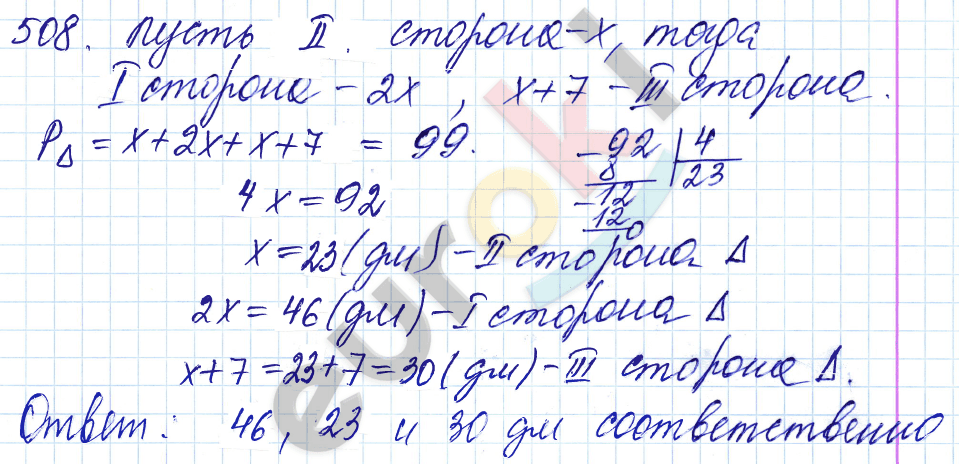 508. Пусть II. сторона - x, тогда
I сторона - 2x, x+7 - III сторона.
P△ = x+2x+x+7 = 99.
4x = 92
-92 | 4
8 23
-12
12
0
x = 23 (дм) - II сторона △
2x = 46 (дм) - I сторона △
x+7 = 23+7 = 30 (дм) - III сторона △.
Ответ: 46, 23 и 30 дм соответственно
euroki